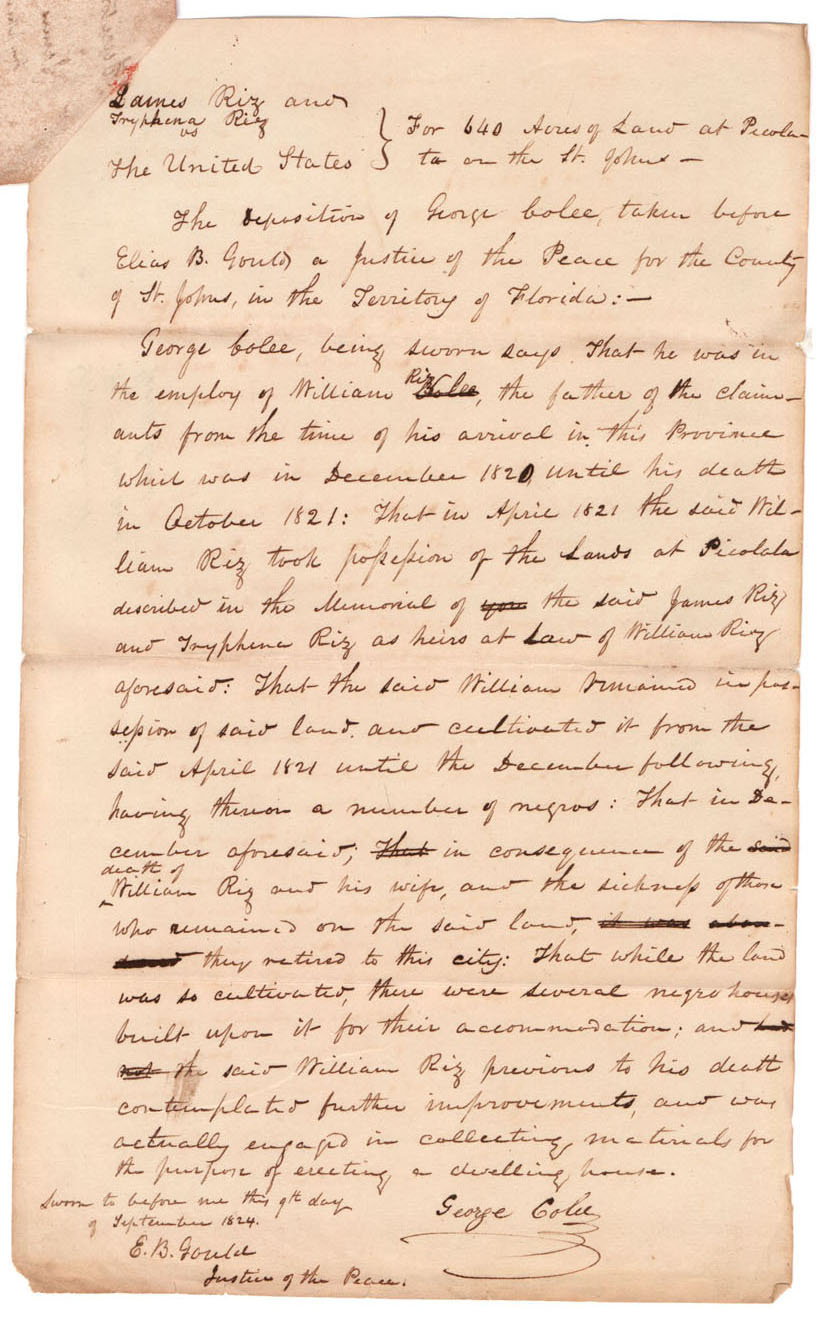 James Riz and
Tryphena Riz
vs
The United States
For 640 Acres of Land at Picola-
ta on the St. Johns —
The Deposition of George Colee, taken before
Elias B. Gould a Justice of the Peace for the County
of St. Johns, in the Territory of Florida: —
George Colee, being sworn says That he was in
the employ of William Riz Colee, the father of the claim-
ants from the time of his arrival in this Province
which was in December 1820, until his death
in October 1821: That in April 1821 the said Wil-
liam Riz took possession of the Lands at Picolata
described in the Memorial of you the said James Riz
and Tryphena Riz as heirs at Law of William Riz
aforesaid: That the said William remained in pos-
session of said land, and cultivated it from the
said April 1821 until the December following,
having thereon a number of negros: That in De-
cember aforesaid; That in consequence of the said
death of
William Riz and his wife, and the sickness of those
who remained on the said land, it was aban-
they retired to this city: That while the land
was so cultivated, there were several negro houses
built upon it for their accommodation; and had
not the said William Riz previous to his death
contemplated further improvements, and was
actually engaged in collecting materials for
the purpose of erecting a dwelling house.
Sworn to before me this 9th day
of September 1824.
George Colee
E. B. Gould
Justice of the Peace.